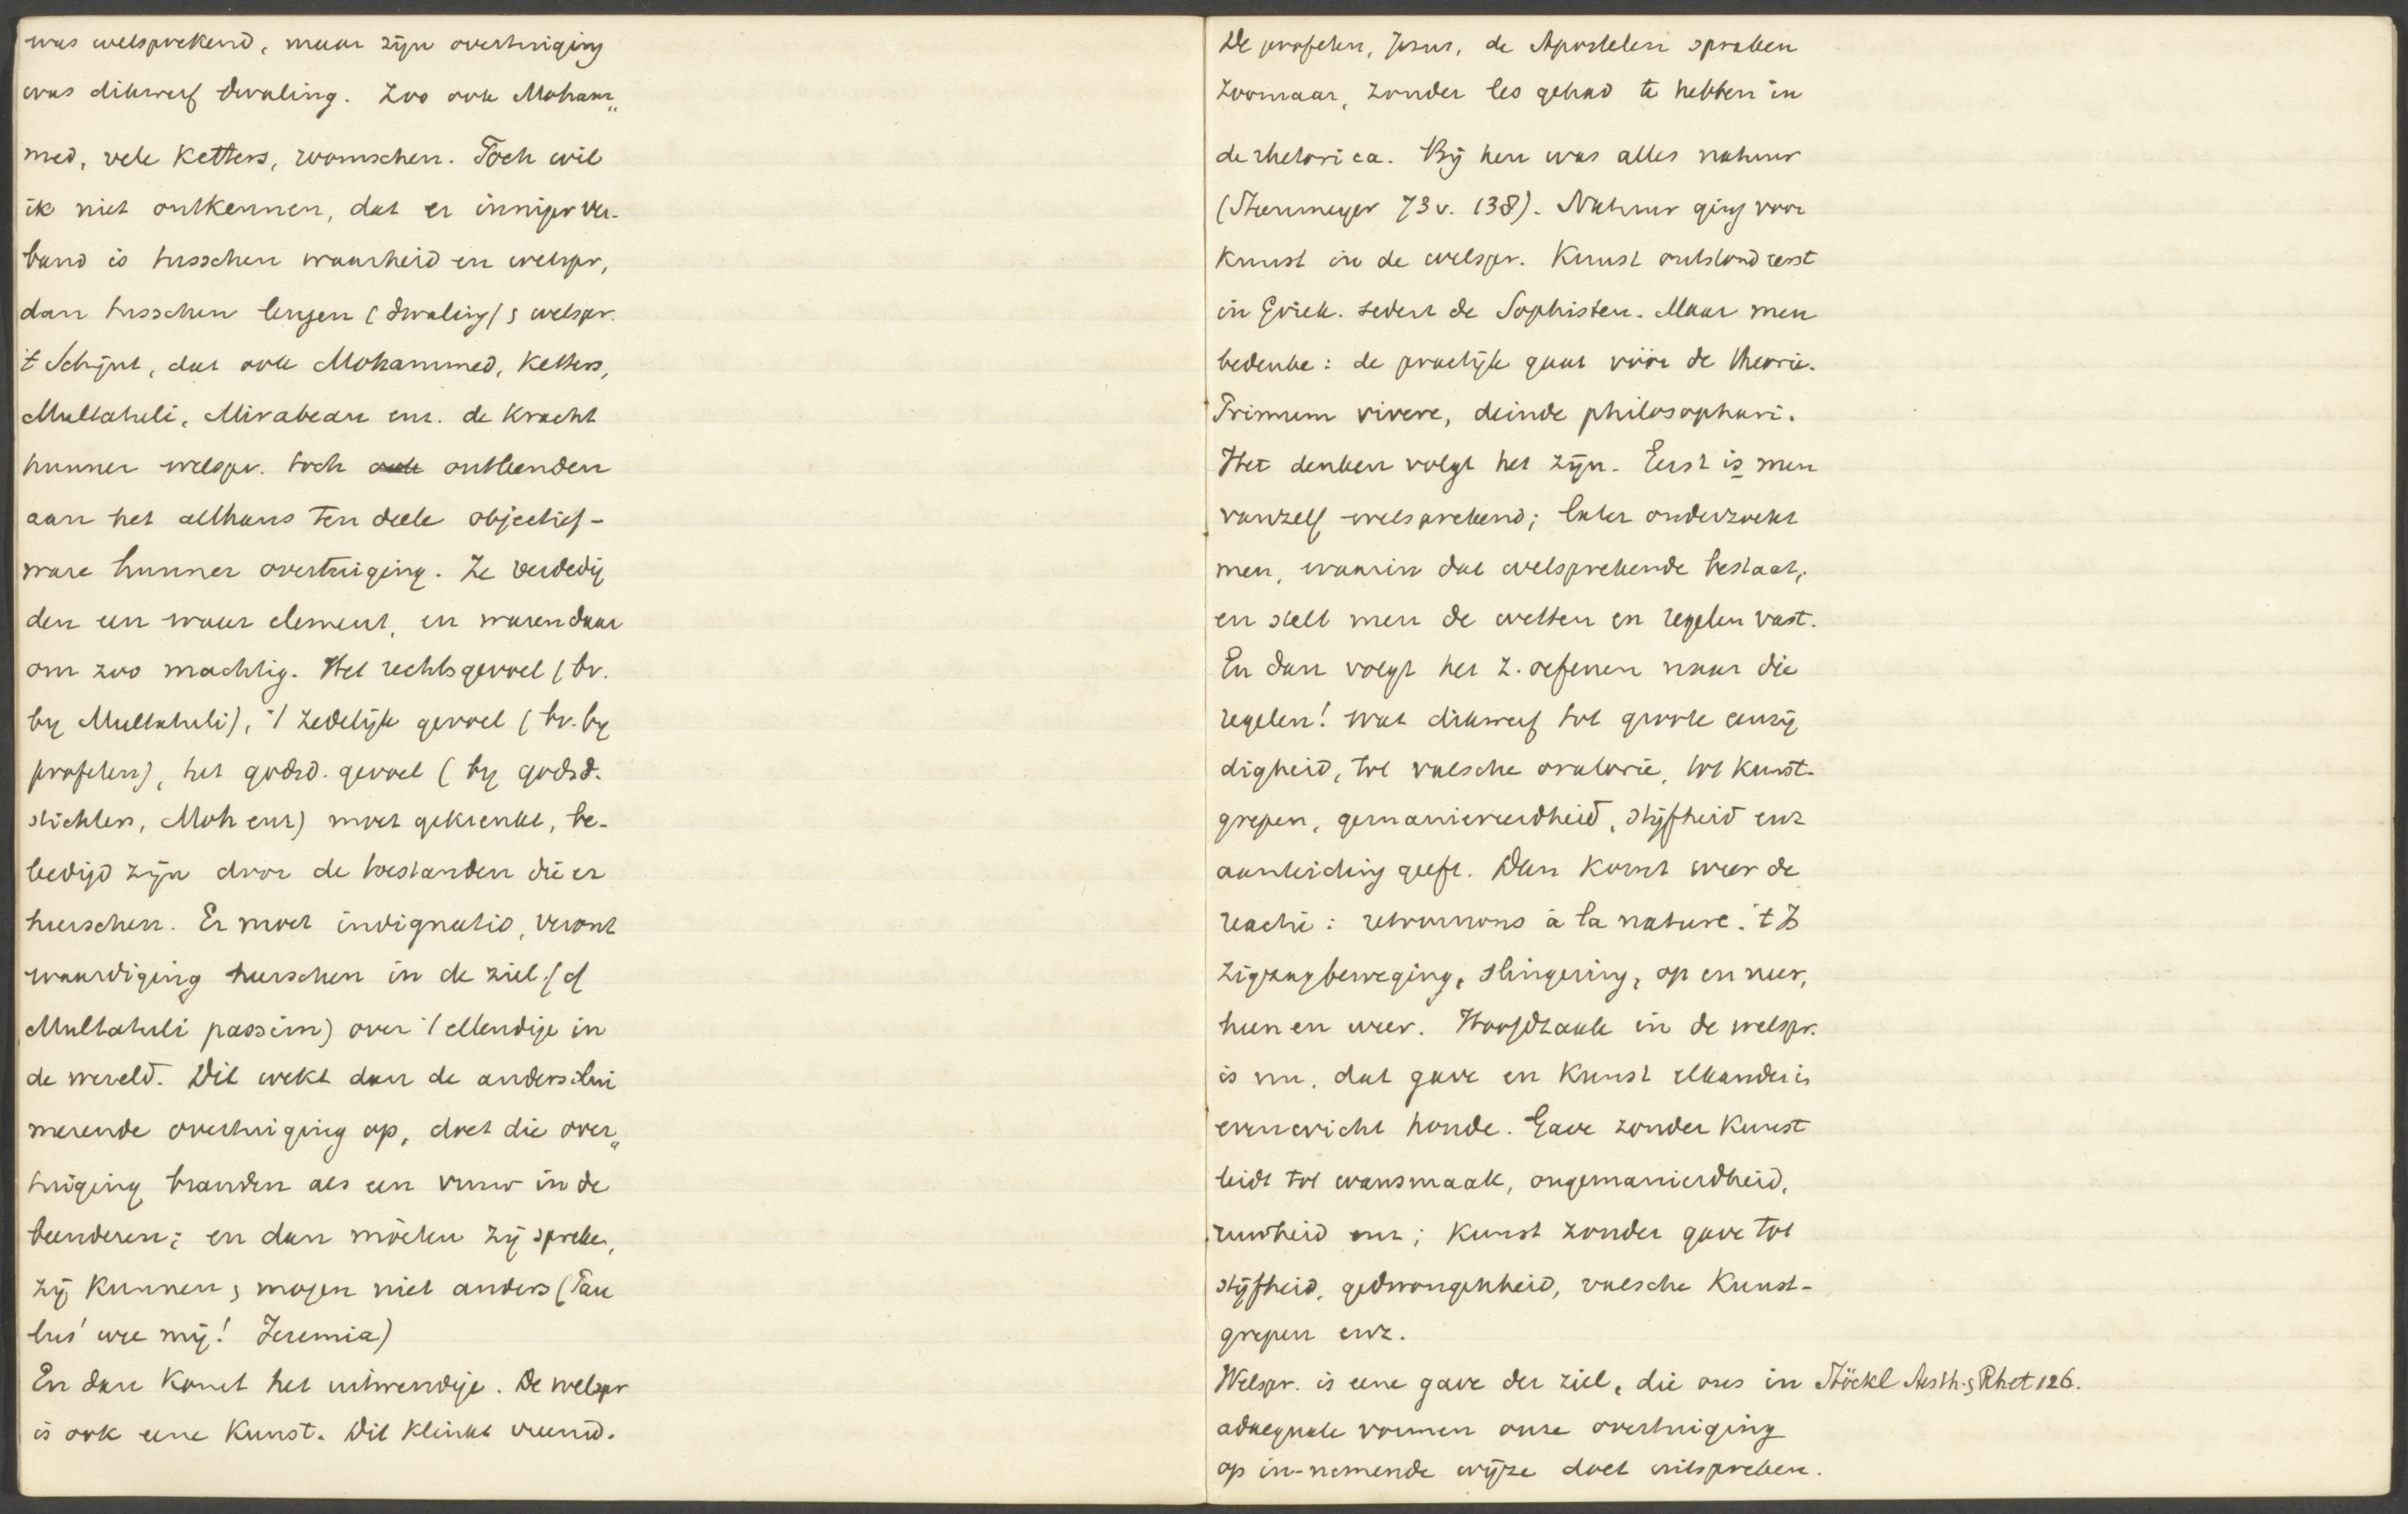 was welsprekend, maar zijn overtuiging
was dikwerf dwaling. Zoo ook Moham„
med, vele ketters, roomschen. Toch wil
ik niet ontkennen, dat er inniger ver-
band is tusschen waarheid en welspr,
dan tusschen leugen (dwaling) & welspr.
't Schijnt, dat ook Mohammed, Ketters,
Multatuli, Mirabeau enz. de kracht
hunner welspr. toch ook ontleenden
aan het althans ten deele objectief-
ware hunner overtuiging. Ze verdedig
den een waar element, en waren daar
om zoo machtig. Het rechtsgevoel (bv.
by Multatuli), 't zedelijk gevoel (bv. by
profeten), het godsd. gevoel (by godsd.
stichters, Moh enz) moet gekrenkt, be-
leedigd zijn door de toestanden die er
heerschen. Er moet indignatio, veront
waardiging heerschen in de ziel (cf
Multatuli passim) over 't ellendige in
de wereld. Dit wekt dan de anders slui
merende overtuiging op, doet die over„
tuiging branden als een vuur in de
beenderen; en dan móeten zij spreken,
zij kunnen & mogen niet anders (Pau
lus' wee mij! Jeremia)
En dan komt het uitwendige. De welspr
is ook eene Kunst. Dit klinkt vreemd.
De profeten, Jezus, de Apostelen spraken
zoomaar, zonder les gehad te hebben in
de rhetorica. Bij hen was alles natuur
(Steenmeyer 73 v. 138). Natuur ging voor
kunst in de welspr. Kunst ontstond eerst
in Griek. sedert de Sophisten. Maar men
bedenke: de practijk gaat vóór de theorie.
Primum vivere, deinde philosophari.
Het denken volgt het zijn. Eerst is men
vanzelf welsprekend; later onderzoekt
men, waarin dat welsprekende bestaat,
en stelt men de wetten en regelen vast.
En dan volgt het z. oefenen naar die
regelen! wat dikwerf tot groote eenzij
digheid, tot valsche oratorie, tot kunst-
grepen, gemaniereerdheid, stijfheid enz
aanleiding geeft. Dan komt weer de
reactie: retournons à la nature. 't Is
zigzagbeweging, slingering, op en neer,
heen en weer. Hoofdzaak in de welspr.
is nu, dat gave en kunst elkander in
evenwicht houde. Gave zonder Kunst
leidt tot wansmaak, ongemanierdheid,
ruwheid enz; Kunst zonder gave tot
stijfheid, gedwongenheid, valsche Kunst-
grepen enz.
Welspr. is eene gave der ziel, die ons in Stöckl Aesth. & Rhet 126.
adaequate vormen onze overtuiging
op in-nemende wijze doet uitspreken.